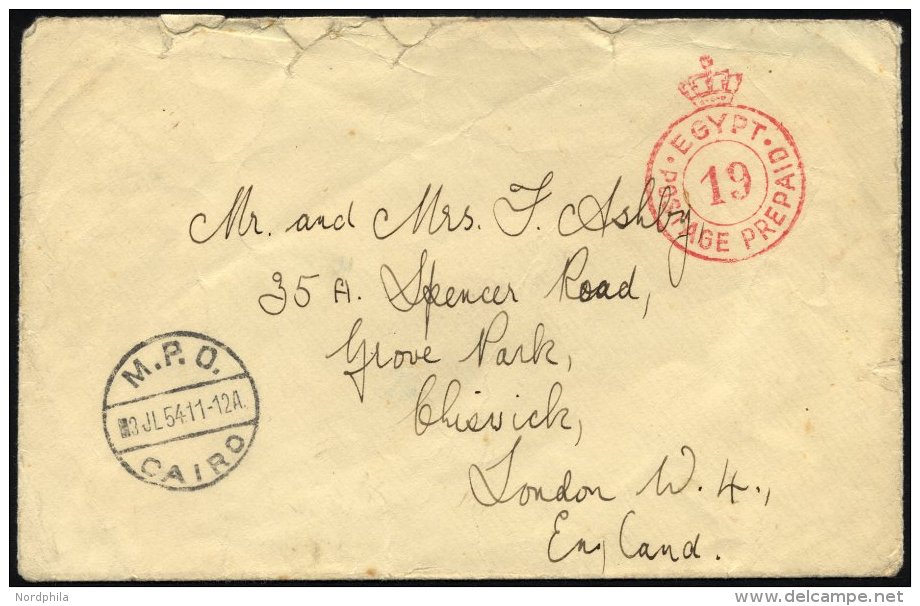 EGYPT
19
POSTAGE PREPAID
Mr. and Mrs. F. Ashby,
35 A. Spencer Road,
Grove Park,
Chiswick,
London W. 4.,
England.
M.P.O.
3 JL 54 11-12A.
CAIRO
Nordphila
delcampe.net